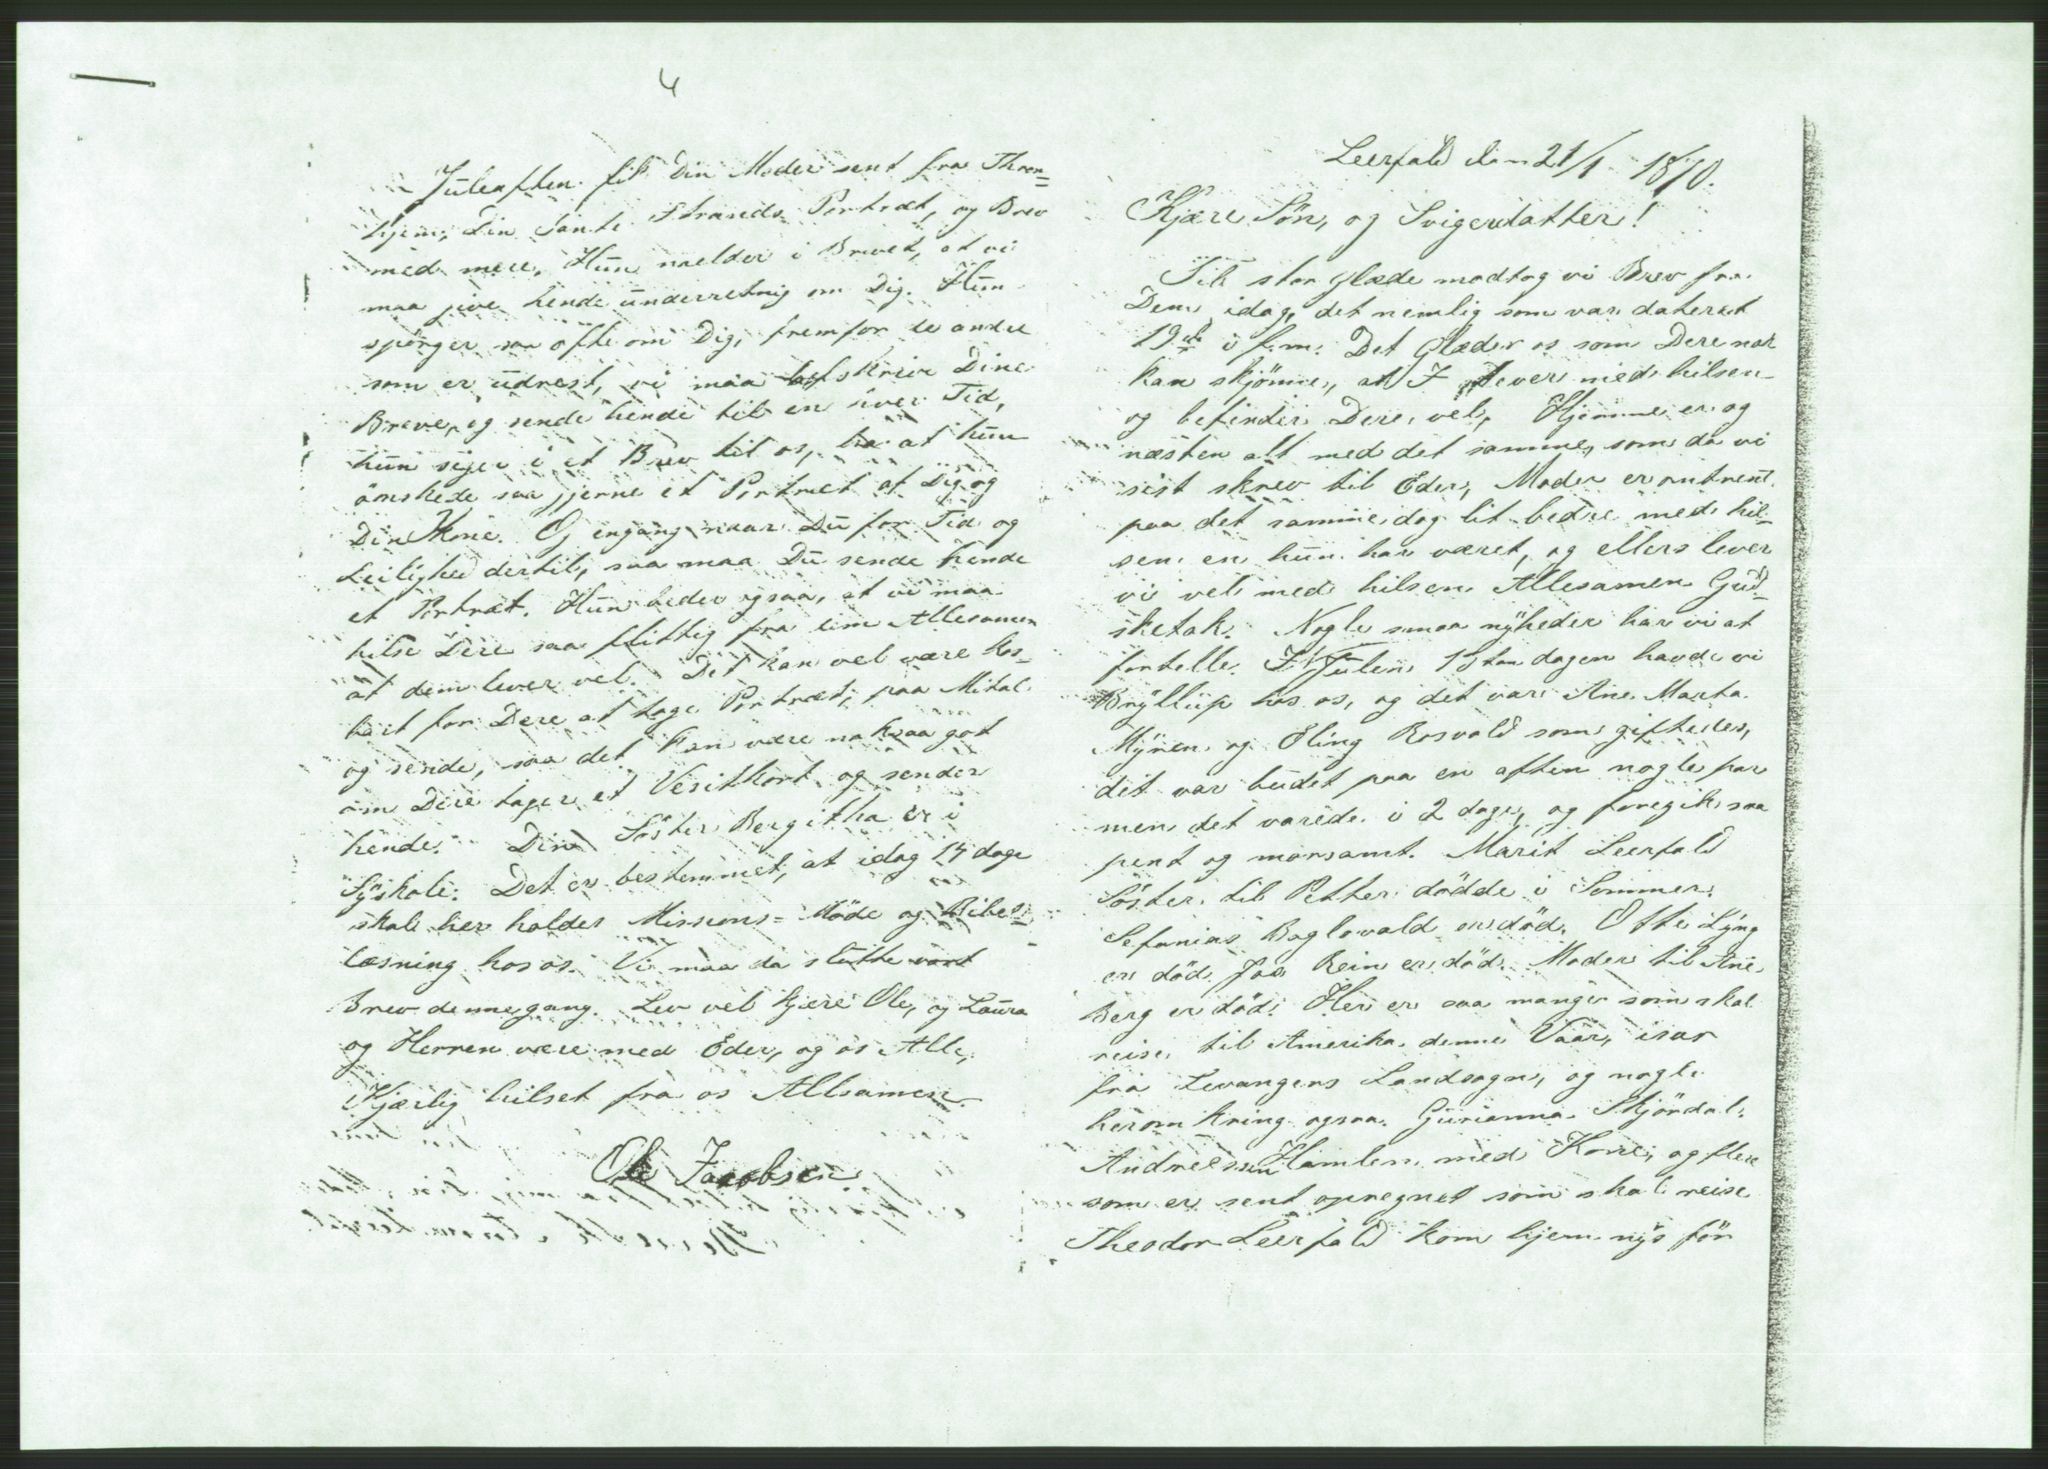 Leerfald den 21/1 1870.
Kjære Sön, og Svigerdatter!
Til stor Glæde modtog vi Brev fra
Dem idag, det nemlig som var dateret
19de i f.m. Det Glæder os som Dere nok
kan skjönne, at I lever med hilsen
og befinder Dere vel, Hjemme er og
næsten alt med det samme, som da vi
sist skrev til Eder, Moder er omtrent
paa det samme, dog lit bedre med hil-
sen en hun har været, og ellers lever
vi vel med hilsen Allesamen Gud
sketak. Nogle smaa nÿheder har vi at
fortelle. I Julen 13tan dagen havde vi
Brÿllup hos os, og det var Ane Marta
Mÿren og Eling Rosvald som giftedes,
dit var budet paa en aften nogle par
men det varede i 2 dage, og foregik saa
pent og morsamt. Marit Leerfald
Söster til Petter dödde i Sommer.
Sefanias Baglovald er död. Otte Lÿng
er död. Jaa Rein er död. Moder til Ane
Berg er död. Her er saa mange som skal
reise til Amerika denne Vaar, især
fra Levangers Landsogn, og nogle
herom kring ogsaa. Gurianna Skjördal.
Andreessen Hamlem med Kone, og flere
som er sent opregnet som skal reise
Theodor Leerfald kom hjem nÿs för
4
Juleaften til Din Moder sent fra Thron=
hjem, Din Tante Strands Portræt, og Brev
med mere, Hun melder i Brevet, at vi
maa jive hende underretnig om Dig. Hun
spörger saa ofte om Dig, fremfor de andre
som er udrest, vi maa afskrive Dine
Breve, og sende hende til en hver Tid,
hun sijer i et Brev til os, ha at hun
önskede saa jjerne et Portræt af Dig og
Din Kone. Og engang naar Du for Tid og
Leilighed dertil, saa maa Du sende hende
et Portræt. Hun beder ogsaa, at vi maa
hilse Dere saa flittig fra dem Allesamen
at dem lever vel. Det kan vel være kos-
bart for Dere at tage Portræt, paa Mital
og sende, saa det kan være nok saa got
om Dere tager et Vesitkort og sender
hende. Din Söster Bergitha er i
Sÿskole. Det er bestemmet, at idag 14 dage
skal her holdes Missions= Möde og Bibel=
læsning hos os. Vi maa da slutte vort
Brev denne gang. Lev vel kjere Ole, og Laura
og Herren være med Eder, og os Alle,
Kjærlig hilset fra os Allsamen.
Ole Jacobsen